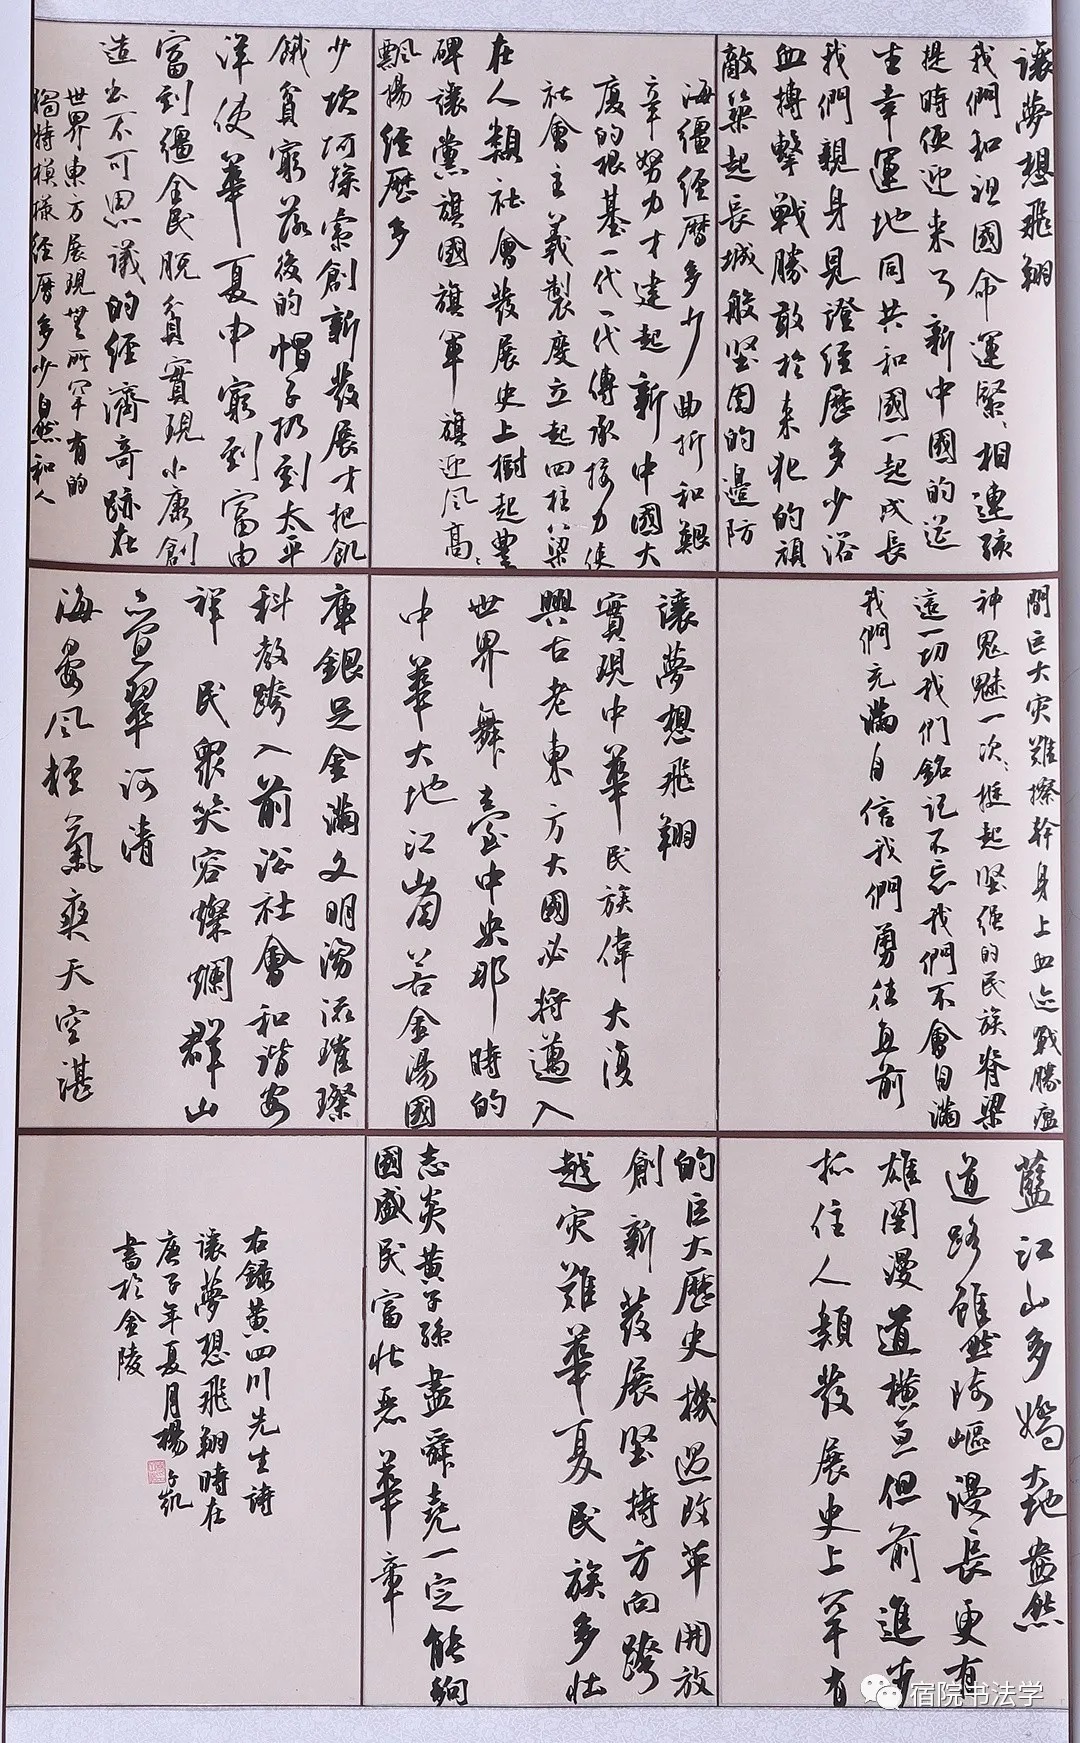 讓夢想飛翔
我們和祖國命運緊、相連孩
提時便迎来了新中國的诞
生幸運地同共和國一起成長
我們親身見證經歷多少浴
血搏擊戰勝敢於来犯的頑
敵築起長城般堅固的邊防
海疆經曆多少曲折和艱
辛努力才建起新中國大
廈的根基一代一代傳承接力使
社會主義製度立起四柱八梁
在人類社會發展史上樹起豐
碑讓黨旗國旗軍旗迎风高、
飄揚經歷多
少次河探索創新發展才把飢
餓貧窮落後的帽子扔到太平
洋使華夏由窮到富由
富到疆全民脱貧實現小康創
造出不可思議的經濟奇跡在
世界東方展現世所罕有的
獨特模樣經曆多少自然和人
間巨大灾難擦幹身上血迹戰勝瘟
神鬼魅一次、挺起堅强的民族脊梁
這一切我们銘记不忘我們不會自滿
我們充滿自信我們勇往直前
讓夢想飛翔
實現中華民族偉大復
興古老東方大國必將邁入
世界舞臺中央那時的
中華大地江山固若金湯國
庫銀足金滿文明湧流璀璨
科教跨入前沿社會和諧安
祥民眾笑容燦爛群山
叠翠河清
海晏风輕氣爽天空湛
藍江山多嬌大地盎然
道路雖然崎嶇漫長更有
雄關漫道橫亘但前進步
抓住人類發展史上罕有
的巨大歷史機遇改革開放
創新發展堅持方向跨
越灾難華夏民族多壮
志炎黄子孫盡舜堯一定能夠
國盛民富壮美華章
右錄黄四川先生詩
讓夢想飛翔時在
庚子年夏月楊子凱
書於金陵
宿院书法学